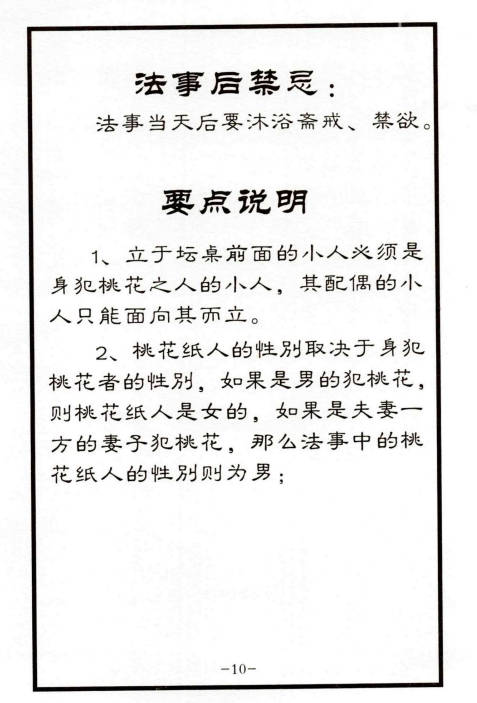 法事后禁忌：
法事当天后要沐浴斋戒、禁欲。
要点说明
1、立于坛桌前面的小人必须是
身犯桃花之人的小人，其配偶的小
人只能面向其而立。
2、桃花纸人的性别取决于身犯
桃花者的性别，如果是男的犯桃花，
则桃花纸人是女的，如果是夫妻一
方的妻子犯桃花，那么法事中的桃
花纸人的性别则为男；
-10-